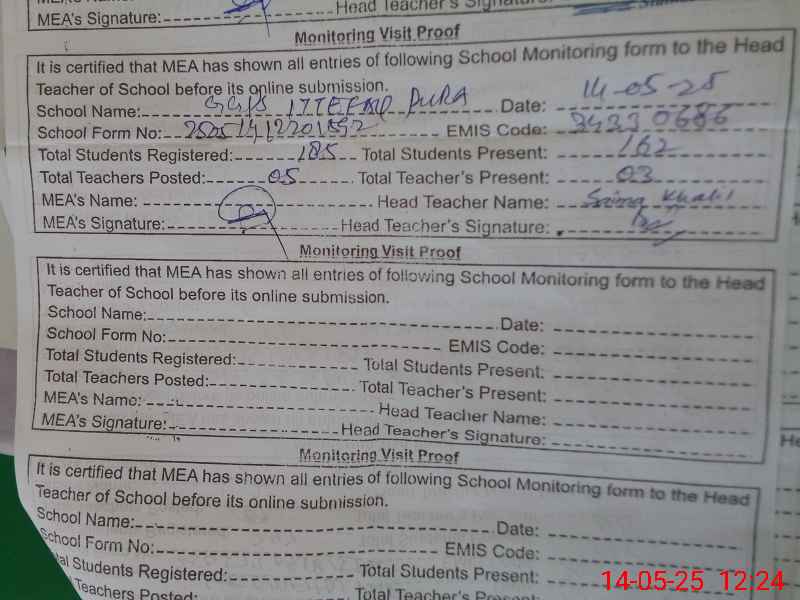 MEA's Signature: Head Teacher's Signature:
Monitoring Visit Proof
It is certified that MEA has shown all entries of following School Monitoring form to the Head
Teacher of School before its online submission.
School Name: PURA Date: 14-05-25
School Form No: EMIS Code: 34330686
Total Students Registered: 185 Total Students Present: 162
Total Teachers Posted: 05 Total Teacher's Present: 03
MEA's Name: Head Teacher Name: Saima Khalil
MEA's Signature: Head Teacher's Signature:
Monitoring Visit Proof
It is certified that MEA has shown all entries of following School Monitoring form to the Head
Teacher of School before its online submission.
School Name: Date:
School Form No: EMIS Code:
Total Students Registered: Total Students Present:
Total Teachers Posted: Total Teacher's Present:
MEA's Name: Head Teacher Name:
MEA's Signature: Head Teacher's Signature:
Monitoring Visit Proof
It is certified that MEA has shown all entries of following School Monitoring form to the Head
Teacher of School before its online submission.
School Name: Date:
School Form No: EMIS Code:
Students Registered: Total Students Present:
Teachers Posted: Total Teacher's Present:
14-05-25 12:24